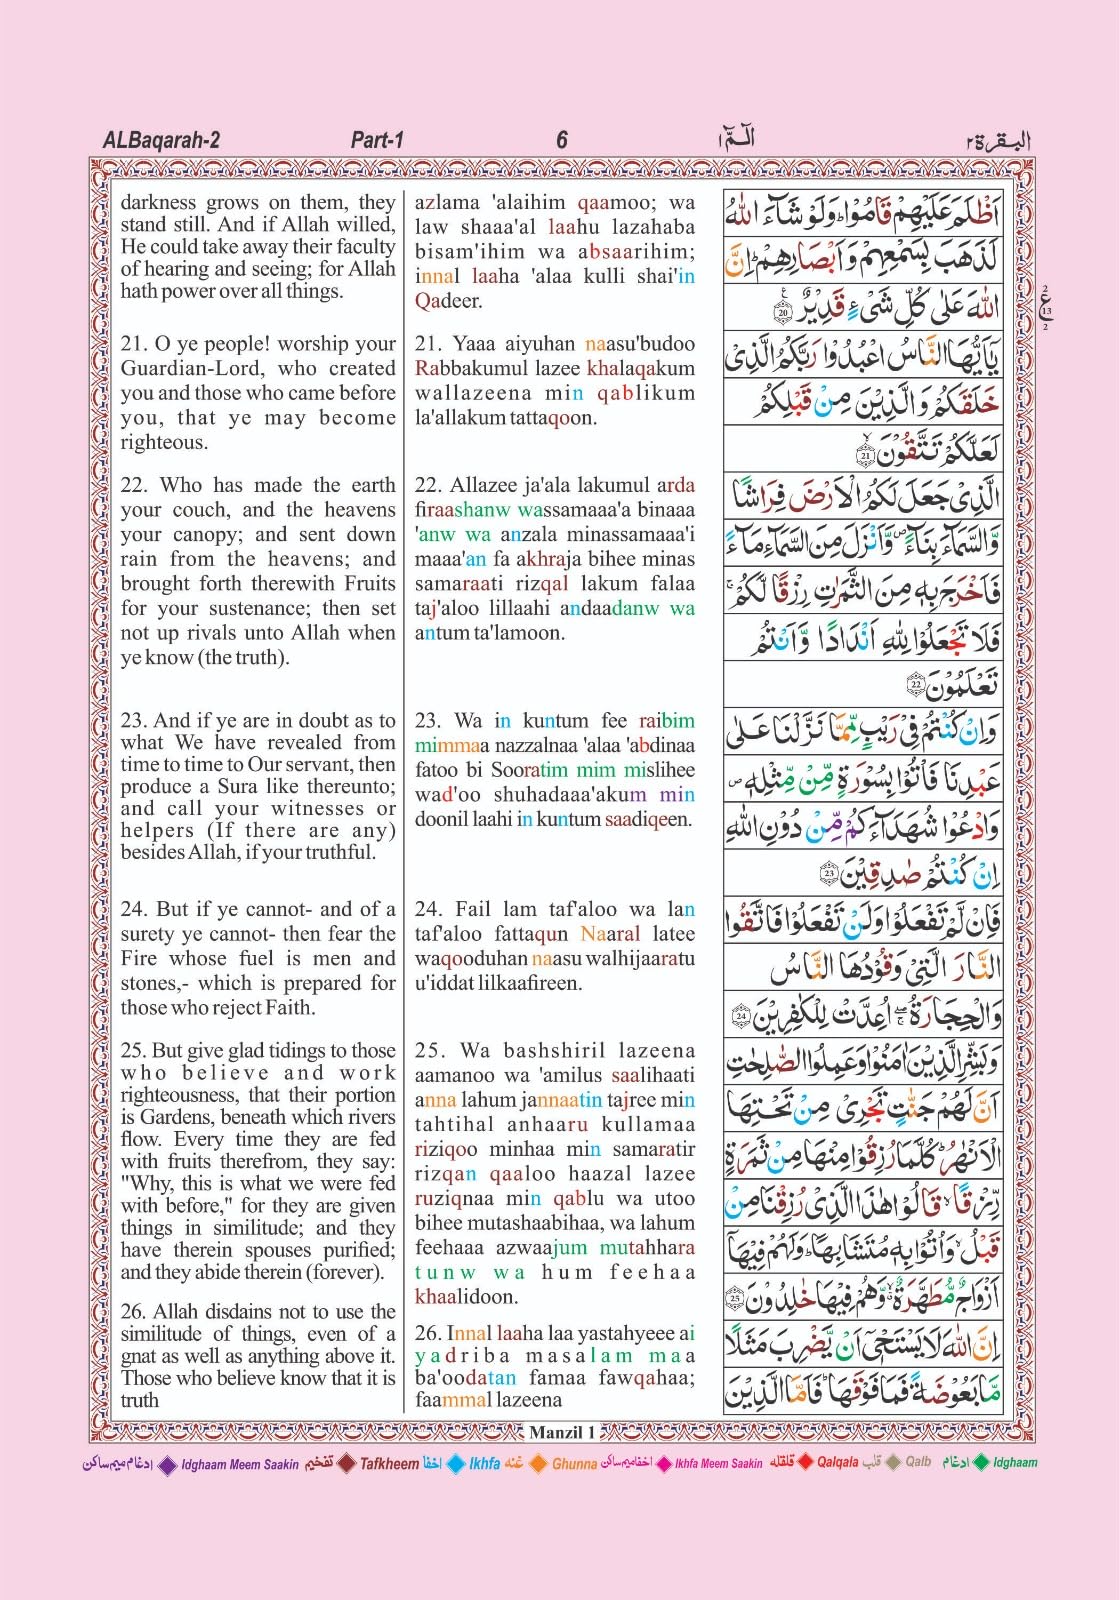 ALBaqarah-2 Part-1 6 الٓمّٓ ۱ البقرة ۲
darkness grows on them, they
stand still. And if Allah willed,
He could take away their faculty
of hearing and seeing; for Allah
hath power over all things.
21. O ye people! worship your
Guardian-Lord, who created
you and those who came before
you, that ye may become
righteous.
22. Who has made the earth
your couch, and the heavens
your canopy; and sent down
rain from the heavens; and
brought forth therewith Fruits
for your sustenance; then set
not up rivals unto Allah when
ye know (the truth).
23. And if ye are in doubt as to
what We have revealed from
time to time to Our servant, then
produce a Sura like thereunto;
and call your witnesses or
helpers (If there are any)
besides Allah, if your truthful.
24. But if ye cannot- and of a
surety ye cannot- then fear the
Fire whose fuel is men and
stones,- which is prepared for
those who reject Faith.
25. But give glad tidings to those
who believe and work
righteousness, that their portion
is Gardens, beneath which rivers
flow. Every time they are fed
with fruits therefrom, they say:
"Why, this is what we were fed
with before," for they are given
things in similitude; and they
have therein spouses purified;
and they abide therein (forever).
26. Allah disdains not to use the
similitude of things, even of a
gnat as well as anything above it.
Those who believe know that it is
truth
azlama 'alaihim qaamoo; wa
law shaaa'al laahu lazahaba
bisam'ihim wa absaarihim;
innal laaha 'alaa kulli shai'in
Qadeer.
21. Yaaa aiyuhan naasu'budoo
Rabbakumul lazee khalaqakum
wallazeena min qablikum
la'allakum tattaqoon.
22. Allazee ja'ala lakumul arda
firaashanw wassamaaa'a binaaa
'anw wa anzala minassamaaa'i
maaa'an fa akhraja bihee minas
samaraati rizqal lakum falaa
taj'aloo lillaahi andaadanw wa
antum ta'lamoon.
23. Wa in kuntum fee raibim
mimmaa nazzalnaa 'alaa 'abdinaa
fatoo bi Sooratim mim mislihee
wad'oo shuhadaaa'akum min
doonil laahi in kuntum saadiqeen.
24. Fail lam taf'aloo wa lan
taf'aloo fattaqun Naaral latee
waqooduhan naasu walhijaaratu
u'iddat lilkaafireen.
25. Wa bashshiril lazeena
aamanoo wa 'amilus saalihaati
anna lahum jannaatin tajree min
tahtihal anhaaru kullamaa
riziqoo minhaa min samaratir
rizqan qaaloo haazal lazee
ruziqnaa min qablu wa utoo
bihee mutashaabihaa, wa lahum
feehaaa azwaajum mutahhara
tunw wa hum feehaa
khaalidoon.
26. Innal laaha laa yastahyeee ai
yadriba masalam maa
ba'oodatan famaa fawqahaa;
faammal lazeena
اَظْلَمَ عَلَيْهِمْ قَامُوْا ؕ وَلَوْ شَآءَ اللّٰهُ
لَذَهَبَ بِسَمْعِهِمْ وَاَبْصَارِهِمْ ؕ اِنَّ
اللّٰهَ عَلٰى كُلِّ شَىْءٍ قَدِيْرٌ 20
يٰۤاَيُّهَا النَّاسُ اعْبُدُوْا رَبَّكُمُ الَّذِىْ
خَلَقَكُمْ وَالَّذِيْنَ مِنْ قَبْلِكُمْ
لَعَلَّكُمْ تَتَّقُوْنَ 21
الَّذِىْ جَعَلَ لَكُمُ الْاَرْضَ فِرَاشًا
وَّالسَّمَآءَ بِنَآءً ۪ وَّاَنْزَلَ مِنَ السَّمَآءِ مَآءً
فَاَخْرَجَ بِهٖ مِنَ الثَّمَرٰتِ رِزْقًا لَّكُمْ ۚ
فَلَا تَجْعَلُوْا لِلّٰهِ اَنْدَادًا وَّاَنْتُمْ
تَعْلَمُوْنَ 22
وَاِنْ كُنْتُمْ فِىْ رَيْبٍ مِّمَّا نَزَّلْنَا عَلٰى
عَبْدِنَا فَاْتُوْا بِسُوْرَةٍ مِّنْ مِّثْلِهٖ ۪
وَادْعُوْا شُهَدَآءَكُمْ مِّنْ دُوْنِ اللّٰهِ
اِنْ كُنْتُمْ صٰدِقِيْنَ 23
فَاِنْ لَّمْ تَفْعَلُوْا وَلَنْ تَفْعَلُوْا فَاتَّقُوا
النَّارَ الَّتِىْ وَقُوْدُهَا النَّاسُ
وَالْحِجَارَةُ ۖۚ اُعِدَّتْ لِلْكٰفِرِيْنَ 24
وَبَشِّرِ الَّذِيْنَ اٰمَنُوْا وَعَمِلُوا الصّٰلِحٰتِ
اَنَّ لَهُمْ جَنّٰتٍ تَجْرِىْ مِنْ تَحْتِهَا
الْاَنْهٰرُ ؕ كُلَّمَا رُزِقُوْا مِنْهَا مِنْ ثَمَرَةٍ
رِّزْقًا ۙ قَالُوْا هٰذَا الَّذِىْ رُزِقْنَا مِنْ
قَبْلُ ۙ وَاُتُوْا بِهٖ مُتَشَابِهًا ؕ وَلَهُمْ فِيْهَاۤ
اَزْوَاجٌ مُّطَهَّرَةٌ ۙ وَّهُمْ فِيْهَا خٰلِدُوْنَ 25
اِنَّ اللّٰهَ لَا يَسْتَحْىٖۤ اَنْ يَّضْرِبَ مَثَلًا
مَّا بَعُوْضَةً فَمَا فَوْقَهَا ؕ فَاَمَّا الَّذِيْنَ
2
ع
13
2
Manzil 1
ادغام میم ساکن Idghaam Meem Saakin تفخیم Tafkheem اخفا Ikhfa غنه Ghunna اخفا میم ساکن Ikhfa Meem Saakin قلقله Qalqala قلب Qalb ادغام Idghaam